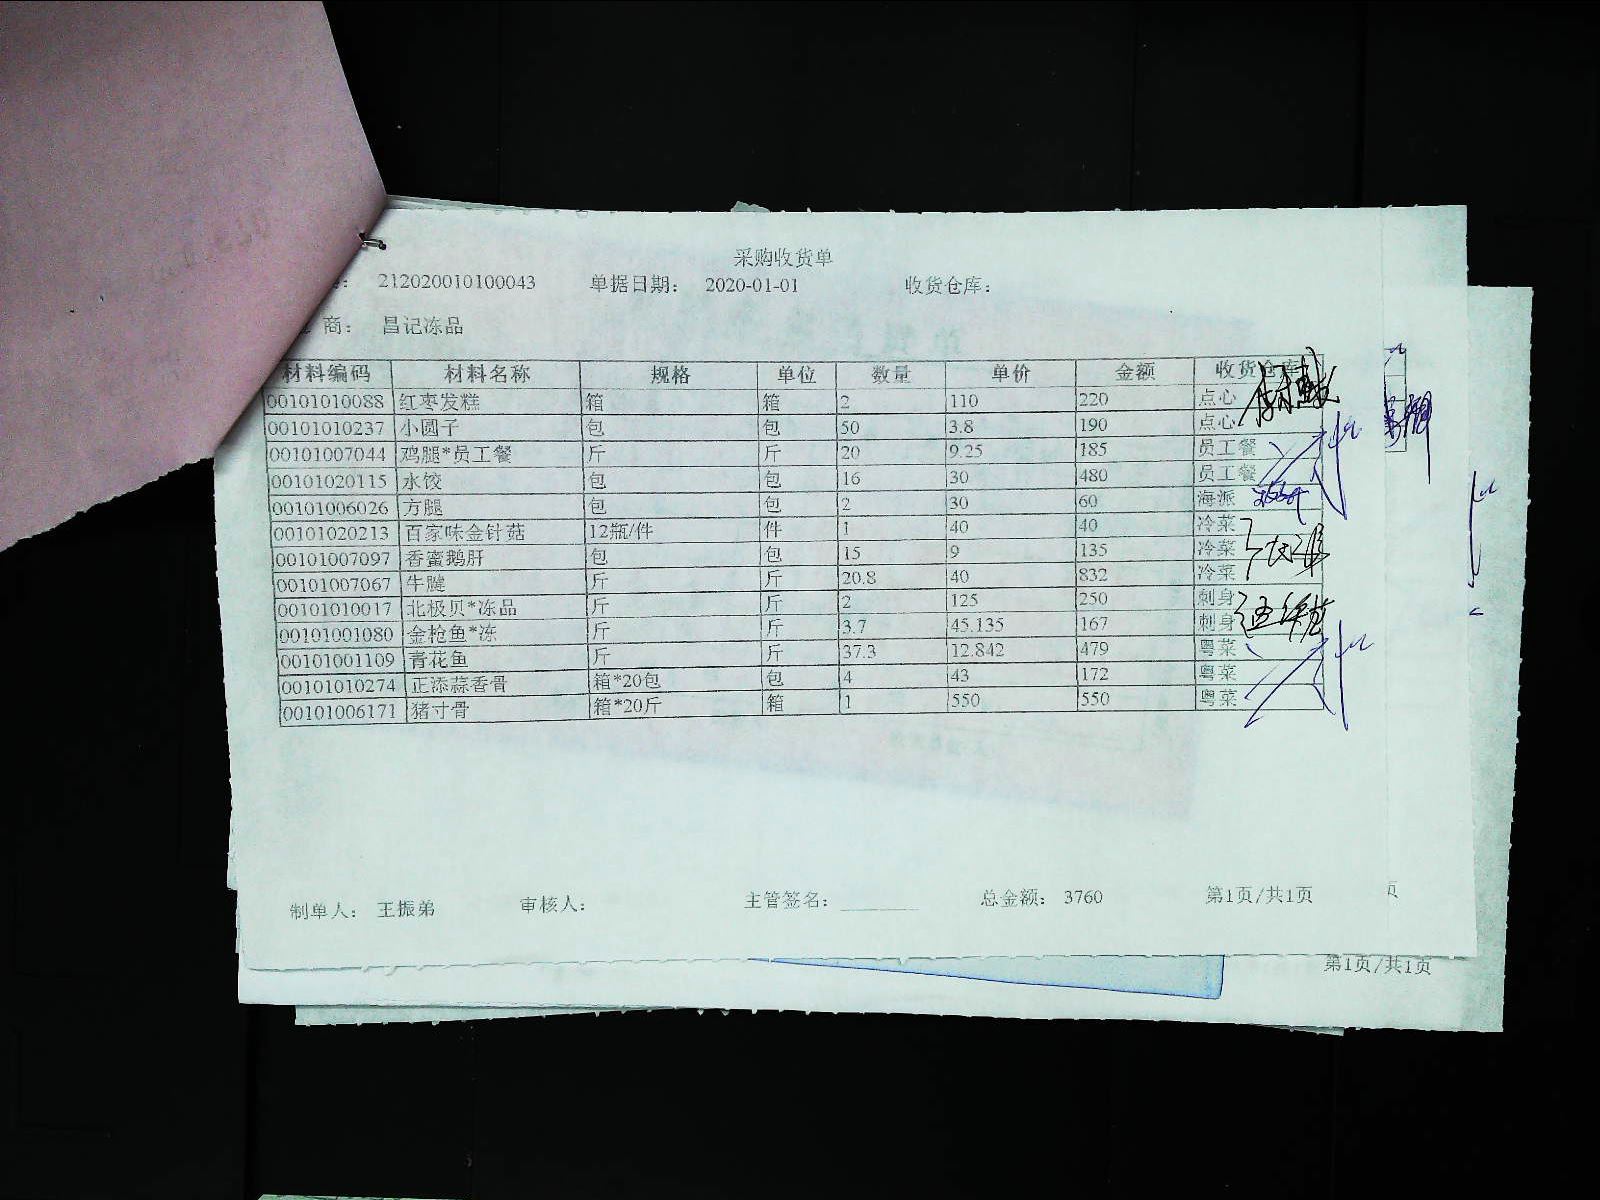 采购收货单
： 212020010100043 单据日期： 2020-01-01 收货仓库：
商： 昌记冻品
材料编码 材料名称 规格 单位 数量 单价 金额 收货仓库
00101010088 红枣发糕 箱 箱 2 110 220 点心
00101010237 小圆子 包 包 50 3.8 190 点心
00101007044 鸡腿*员工餐 斤 斤 20 9.25 185 员工餐
00101020115 水饺 包 包 16 30 480 员工餐
00101006026 方腿 包 包 2 30 60 海派
00101020213 百家味金针菇 12瓶/件 件 1 40 40 冷菜
00101007097 香蜜鹅肝 包 包 15 9 135 冷菜
00101007067 牛腱 斤 斤 20.8 40 832 冷菜
00101010017 北极贝*冻品 斤 斤 2 125 250 刺身
00101001080 金枪鱼*冻 斤 斤 3.7 45.135 167 刺身
00101001109 青花鱼 斤 斤 37.3 12.842 479 粤菜
00101010274 正添蒜香骨 箱*20包 包 4 43 172 粤菜
00101006171 猪寸骨 箱*20斤 箱 1 550 550 粤菜
制单人： 王振弟 审核人： 主管签名： 总金额： 3760 第1页/共1页
页
第1页/共1页